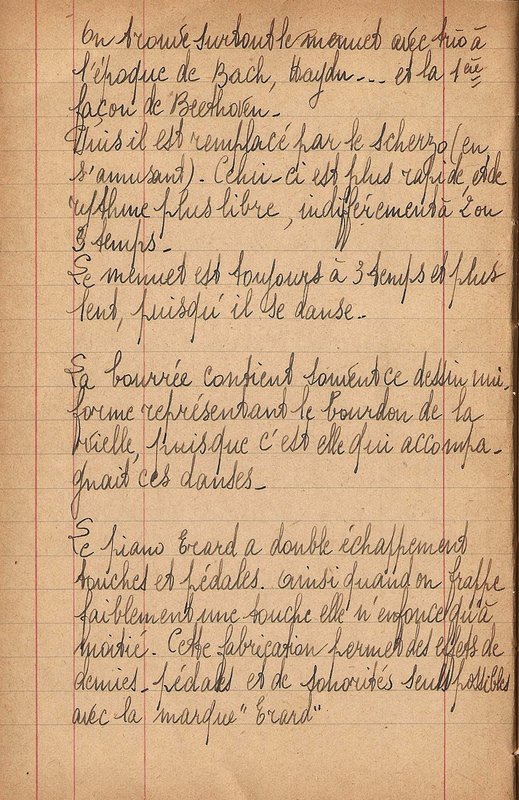 On trouve surtout le menuet avec trio à
l'époque de Bach, Haydn... et la 1ère
façon de Beethoven_
Puis il est remplacé par le scherzo (en
s'amusant)_ Celui-ci est plus rapide, et de
rythme plus libre, indifféremment à 2 ou
3 temps_
Le menuet est toujours à 3 temps et plus
lent, puisqu'il se danse_
La bourrée contient souvent ce dessin uni-
forme représentant le bourdon de la
vielle, puisque c'est elle qui accompa-
gnait ces danses_
Le piano Erard a double échappement
touches et pédales. ainsi quand on frappe
faiblement une touche elle n'enfonce qu'à
moitié_ Cette fabrication permet des effets de
demies-pédales et de sonorités seuls possibles
avec la marque "Erard"